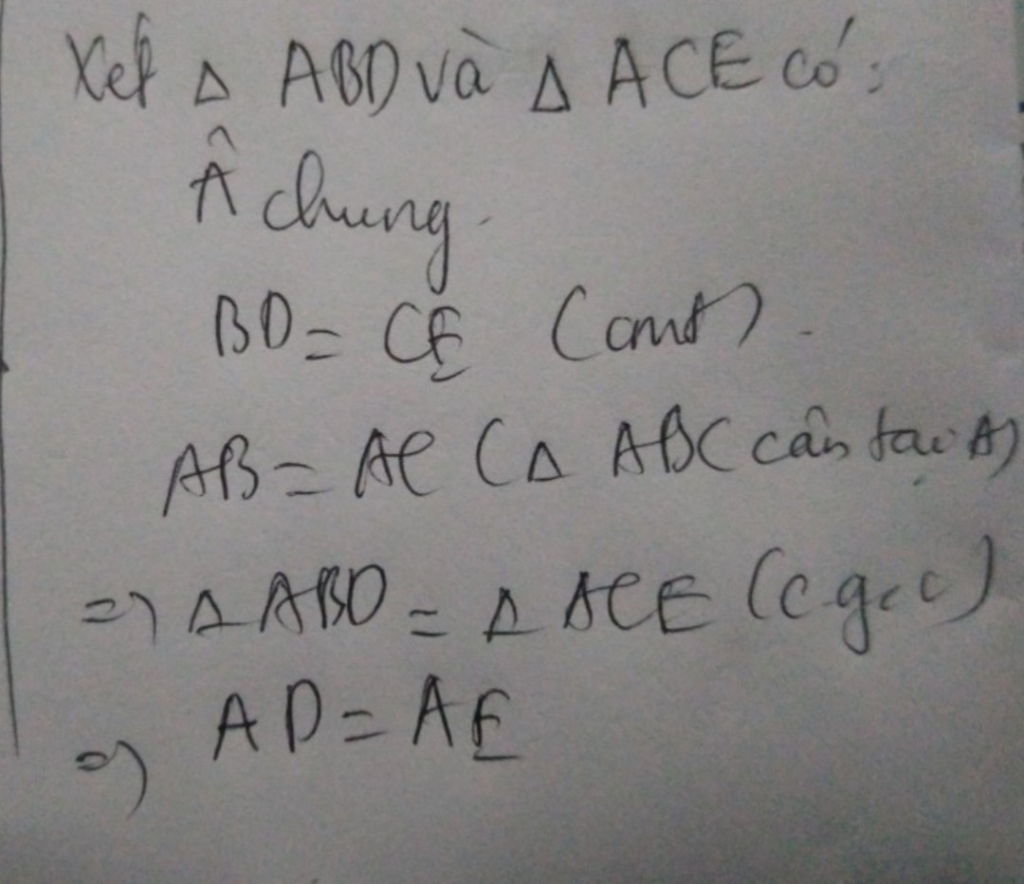 Xét △ ABD và △ ACE có:
Â chung.
BD = CE (cmt).
AB = AC (△ ABC cân tại A)
=> △ ABD = △ ACE (c.g.c)
=> AD = AE